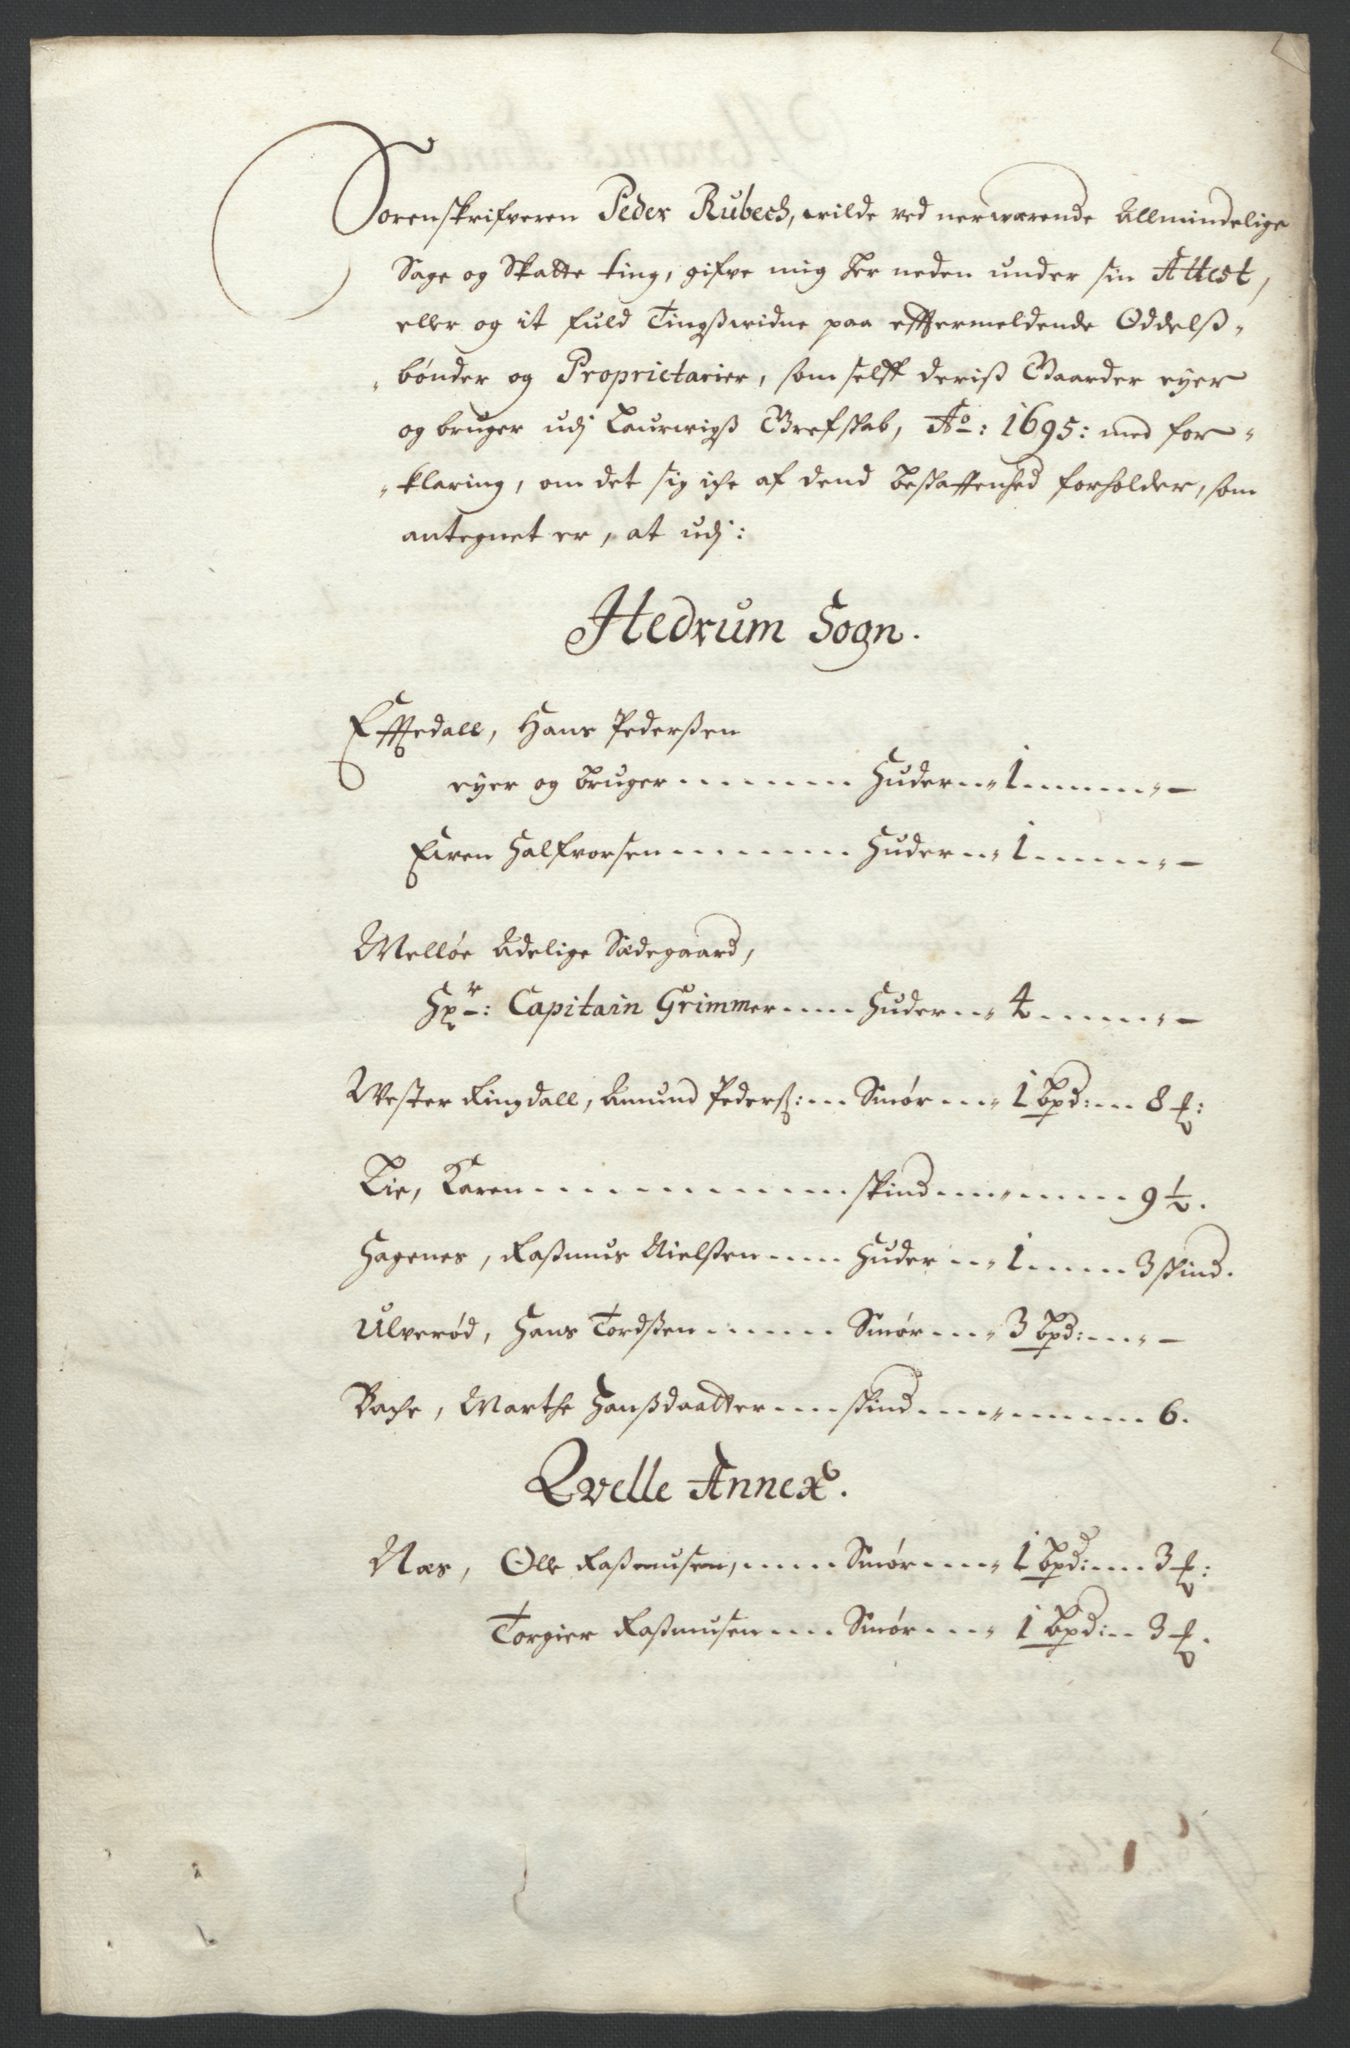 Sorenskrifveren Peder Rubech, wilde ved nerwærende Allmindelige
Sage og Skatte ting, gifve mig her neden under sin Attest,
eller og it fuld Tingßwidne paa effermeldende Oddelß-
bønder og Proprietarier, som selff deriß Gaarder eyer
og bruger udj Laurwigß Grefskab, Ao: 1695: med for-
klaring, om det sig iche af dend beskaffenhed forholder, som
antegnet er, at udj:
Hedrum Sogn.
Efftedall, Hans Pederßen
eyer og bruger ...... Huder 1 -
Even Halfvorsen ...... Huder 1 -
Melløe Adelige Sædegaard,
Hr: Capitain Grimmer ...... Huder 4 -
Wester Ringdall, Amund Pederß: ... Smør 1 bpd: 8 ℔:
Lie, Karen ...... skind 9½.
Hagenes, Raßmus Nielßen ...... Huder 1 ... 3 skind.
Ulverød, Hans Tordßen ...... Smør 3 bpd: -
Bache, Marthe Hanßdaatter ... skind 6.
Qvelle Annex.
Næs, Olle Raßmusen, ...... Smør 1 bpd: 3 ℔:
Torgier Raßmusen ...... Smør 1 bpd: 3 ℔.